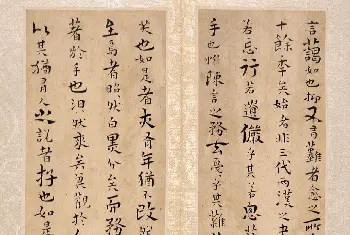 言藹如也抑又有難者愈之所
十餘年矣始者非三代兩漢之書
若忘行若遺儼乎其若思
手也惟陳言之務去戛乎其難
笑也如是者亦有年猶不改然
至焉者昭然白黑分矣而務
著於手也汩然來矣其觀於人
以其猶有人之說者存也如是